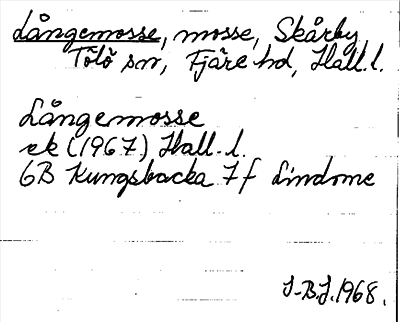 Långemosse, mosse, Skårby
Tölö sn, Fjäre hd, Hall. l.
Långemosse
ek (1967) Hall. l.
6B Kungsbacka 7f Lindome
I-B.J. 1968.